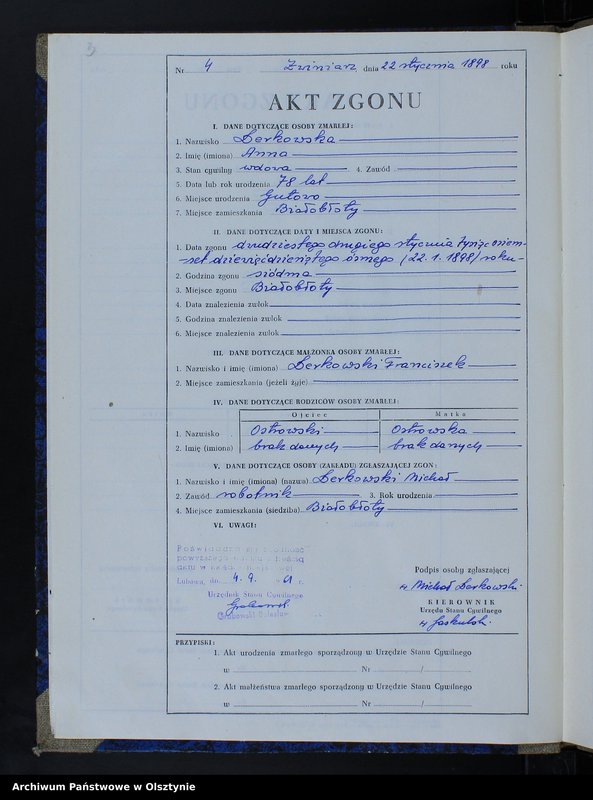 Nr 4 Zwiniarz, dnia 22 stycznia 1898 roku
AKT ZGONU
I. DANE DOTYCZĄCE OSOBY ZMARŁEJ:
1. Nazwisko Derkowska
2. Imię (imiona) Anna
3. Stan cywilny wdowa 4. Zawód
5. Data lub rok urodzenia 78 lat
6. Miejsce urodzenia Gutowo
7. Miejsce zamieszkania Białobłoty
II. DANE DOTYCZĄCE DATY I MIEJSCA ZGONU:
1. Data zgonu dwudziestego drugiego stycznia tysiąc osiem-
set dziewięćdziesiątego ósmego (22. 1. 1898) roku
2. Godzina zgonu siódma
3. Miejsce zgonu Białobłoty
4. Data znalezienia zwłok
5. Godzina znalezienia zwłok
6. Miejsce znalezienia zwłok
III. DANE DOTYCZĄCE MAŁŻONKA OSOBY ZMARŁEJ:
1. Nazwisko i imię (imiona) Derkowski Franciszek
2. Miejsce zamieszkania (jeżeli żyje)
IV. DANE DOTYCZĄCE RODZICÓW OSOBY ZMARŁEJ:
Ojciec Matka
1. Nazwisko Ostrowski Ostrowska
2. Imię (imiona) brak danych brak danych
V. DANE DOTYCZĄCE OSOBY (ZAKŁADU) ZGŁASZAJĄCEJ ZGON:
1. Nazwisko i imię (imiona) (nazwa) Derkowski Michał
2. Zawód robotnik 3. Rok urodzenia
4. Miejsce zamieszkania (siedziba) Białobłoty
VI. UWAGI:
Poświadcza się zgodność
powyższego z treścią
aktu w księdze
Lubawa, dn. 4. 9. 61 r.
Urzędnik Stanu Cywilnego
Grabowski
Grabowski Bolesław
Podpis osoby zgłaszającej
Michał Derkowski
KIEROWNIK
Urzędu Stanu Cywilnego
PRZYPISKI:
1. Akt urodzenia zmarłego sporządzony w Urzędzie Stanu Cywilnego
w Nr /
2. Akt małżeństwa zmarłego sporządzony w Urzędzie Stanu Cywilnego
w Nr /
Archiwum Państwowe w Olsztynie